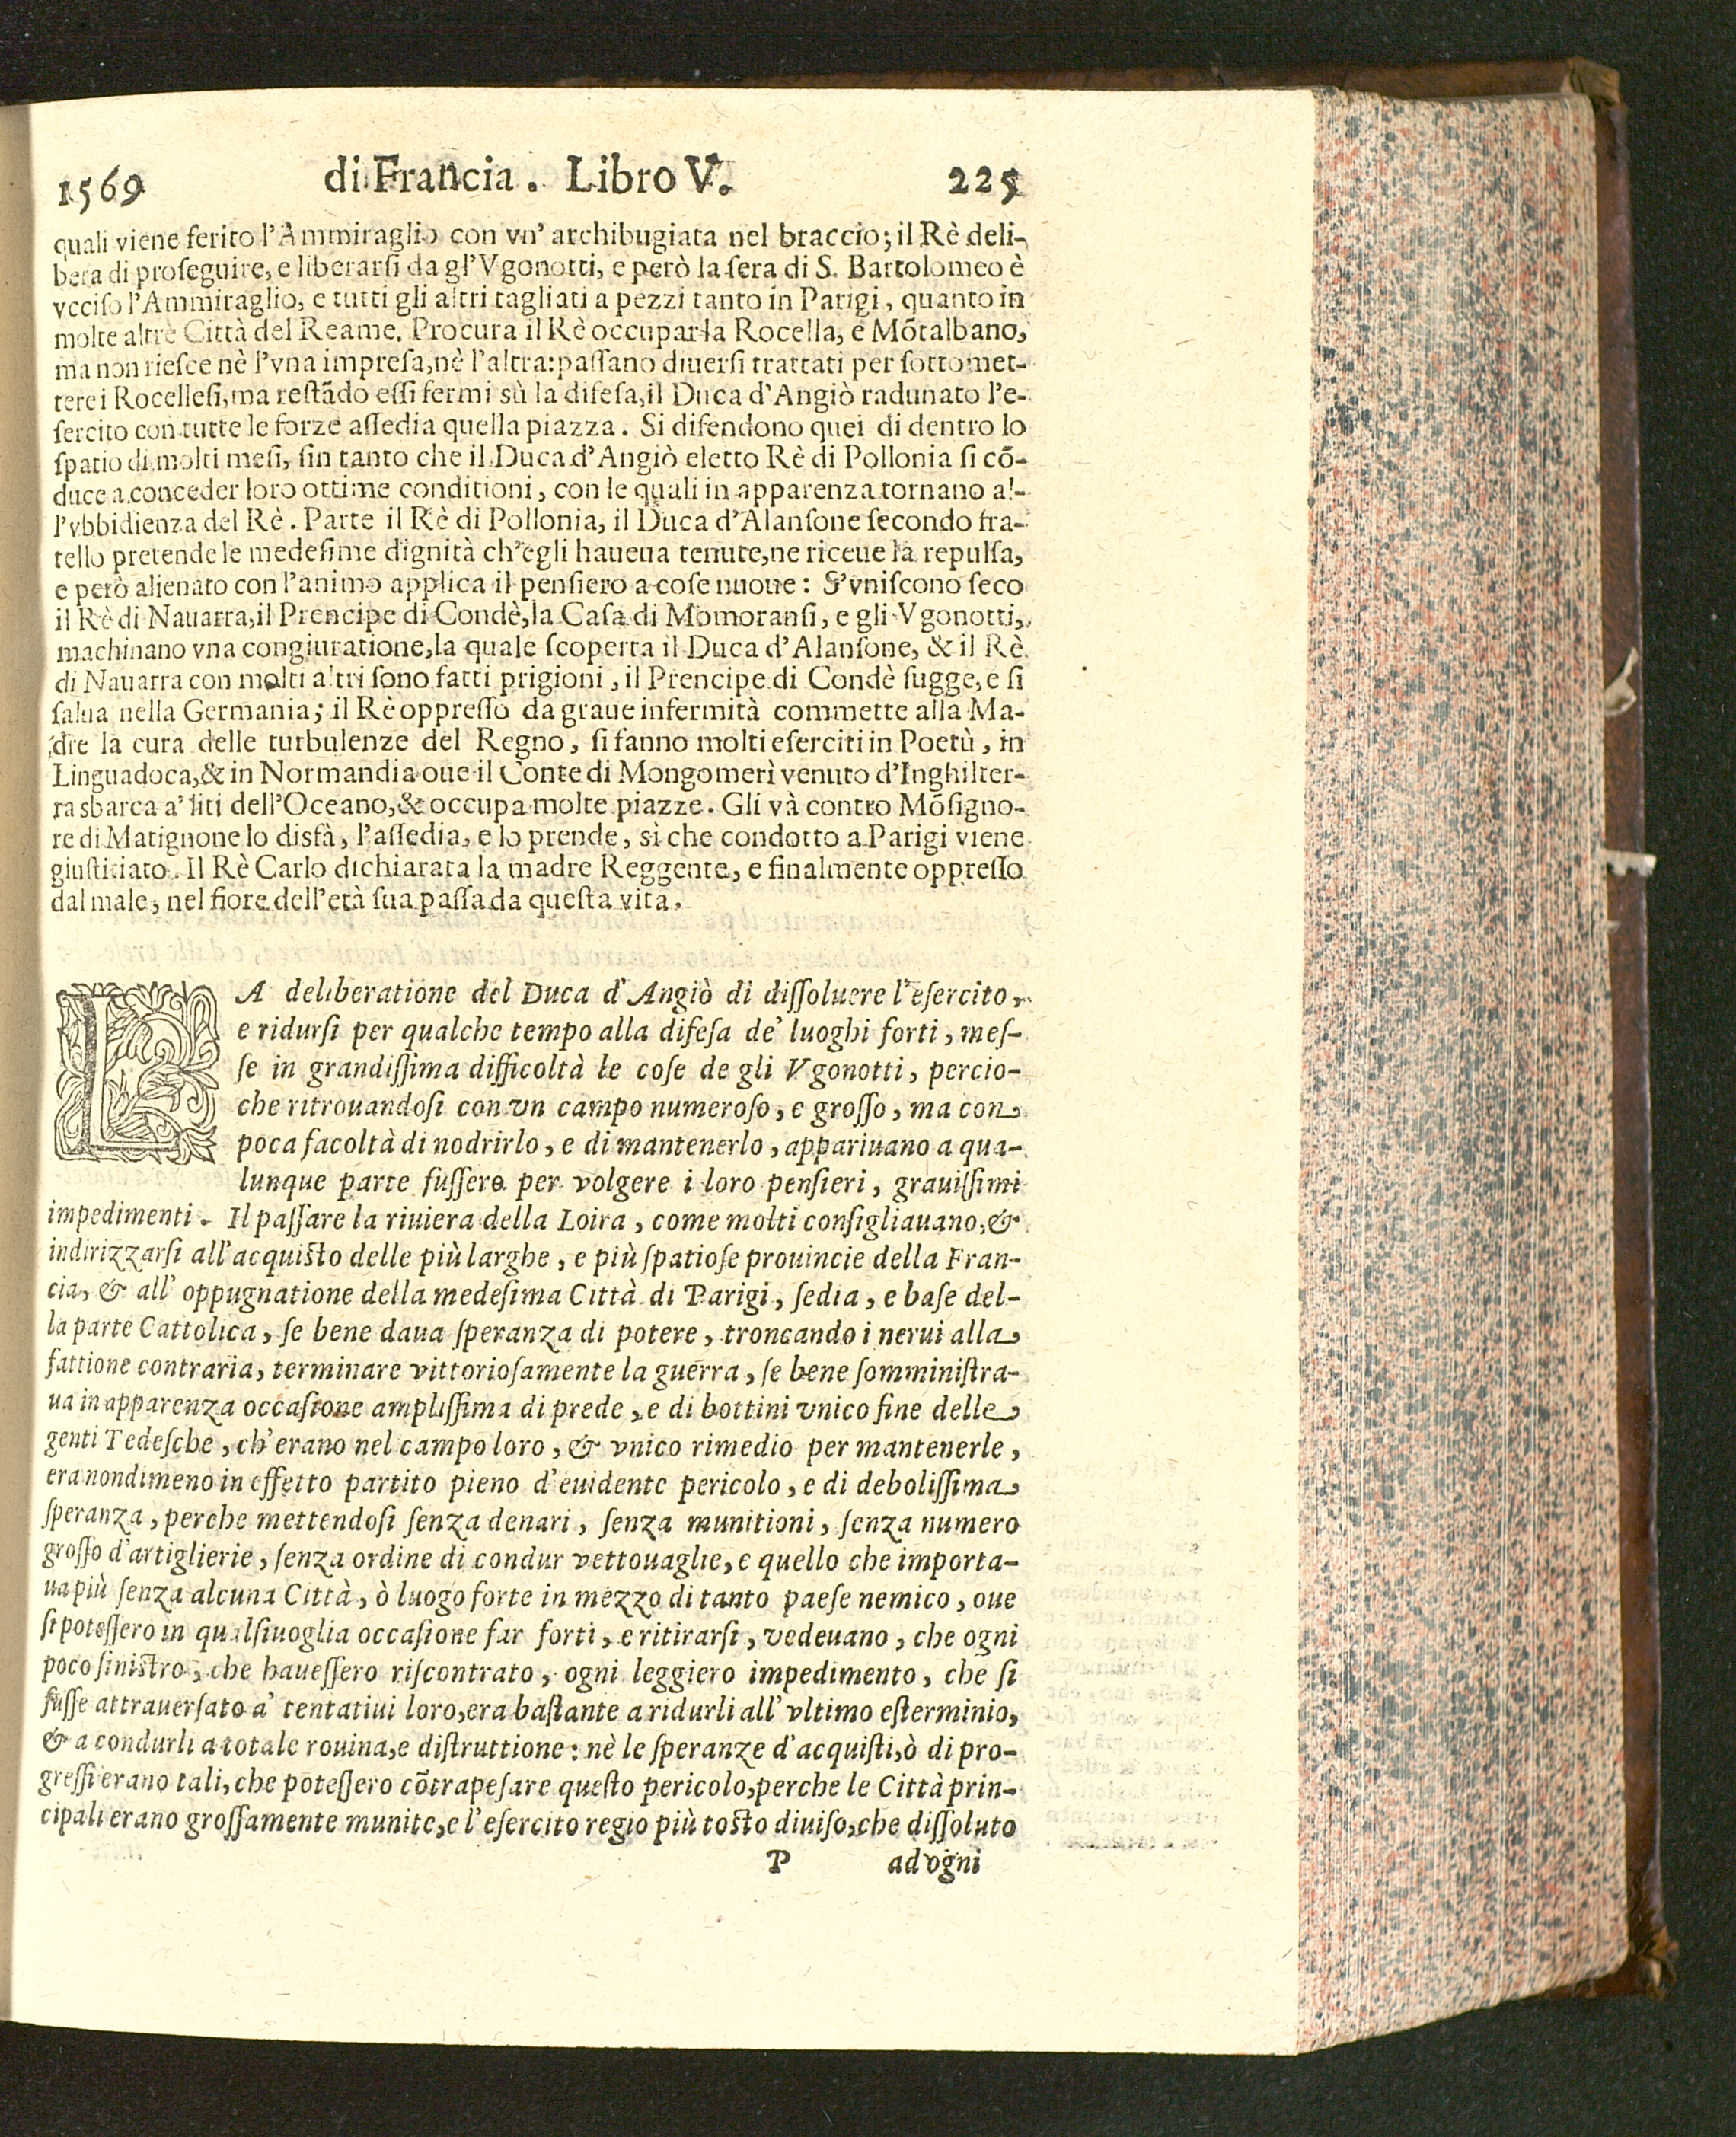 1569 di Francia. Libro V. 225
quali viene ferito l'Ammiraglio con vn' archibugiata nel braccio; il Rè deli-
bera di proſeguire, e liberarſi da gl'Vgonotti, e però la ſera di S. Bartolomeo è
vcciſo l'Ammiraglio, e tutti gli altri tagliati a pezzi tanto in Parigi, quanto in
molte altre Città del Reame. Procura il Rè occupar la Rocella, e Mõtalbano,
ma non rieſce nè l'vna impreſa, nè l'altra: paſſano diuerſi trattati per ſottomet-
tere i Rocelleſi, ma reſtãdo eſſi fermi sù la difeſa, il Duca d'Angiò radunato l'e-
ſercito con tutte le forze aſſedia quella piazza. Si difendono quei di dentro lo
ſpatio di molti meſi, ſin tanto che il Duca d'Angiò eletto Rè di Pollonia ſi cõ-
duce a conceder loro ottime conditioni, con le quali in apparenza tornano al-
l'vbbidienza del Rè. Parte il Rè di Pollonia, il Duca d'Alanſone ſecondo fra-
tello pretende le medeſime dignità ch'egli haueua tenute, ne riceue la repulſa,
e però alienato con l'animo applica il penſiero a coſe nuoue: S'vniſcono ſeco
il Rè di Nauarra, il Prencipe di Condè, la Caſa di Momoranſi, e gli Vgonotti,
machinano vna congiuratione, la quale ſcoperta il Duca d'Alanſone, & il Rè
di Nauarra con molti altri ſono fatti prigioni, il Prencipe di Condè fugge, e ſi
ſalua nella Germania; il Rè oppreſſo da graue infermità commette alla Ma-
dre la cura delle turbulenze del Regno, ſi fanno molti eſerciti in Poetù, in
Linguadoca, & in Normandia oue il Conte di Mongomerì venuto d'Inghilter-
ra sbarca a' liti dell'Oceano, & occupa molte piazze. Gli và contro Mõſigno-
re di Matignone lo disfà, l'aſſedia, e lo prende, sì che condotto a Parigi viene
giuſtitiato. Il Rè Carlo dichiarata la madre Reggente, e finalmente oppreſſo
dal male, nel fiore dell'età ſua paſſa da queſta vita.
LA deliberatione del Duca d'Angiò di diſſoluere l'eſercito,
e ridurſi per qualche tempo alla difeſa de' luoghi forti, meſ-
ſe in grandiſſima difficoltà le coſe de gli Vgonotti, percio-
che ritrouandoſi con vn campo numeroſo, e groſſo, ma con
poca facoltà di nodrirlo, e di mantenerlo, appariuano a qua-
lunque parte fuſſero per volgere i loro penſieri, grauiſſimi
impedimenti. Il paſſare la riuiera della Loira, come molti conſigliauano, &
indirizzarſi all'acquiſto delle più larghe, e più ſpatioſe prouincie della Fran-
cia, & all' oppugnatione della medeſima Città di Parigi, ſedia, e baſe del-
la parte Cattolica, ſe bene daua ſperanza di potere, troncando i nerui alla
fattione contraria, terminare vittorioſamente la guerra, ſe bene ſomminiſtra-
ua in apparenza occaſione ampliſſima di prede, e di bottini vnico fine delle
genti Tedeſche, ch'erano nel campo loro, & vnico rimedio per mantenerle,
era nondimeno in effetto partito pieno d'euidente pericolo, e di deboliſſima
ſperanza, perche mettendoſi ſenza denari, ſenza munitioni, ſenza numero
groſſo d'artiglierie, ſenza ordine di condur vettouaglie, e quello che importa-
ua più ſenza alcuna Città, ò luogo forte in mezzo di tanto paeſe nemico, oue
ſi poteſſero in qualſiuoglia occaſione far forti, e ritirarſi, vedeuano, che ogni
poco ſiniſtro, che haueſſero riſcontrato, ogni leggiero impedimento, che ſi
fuſſe attrauerſato a' tentatiui loro, era baſtante a ridurli all' vltimo eſterminio,
& a condurli a totale rouina, e diſtruttione: nè le ſperanze d'acquiſti, ò di pro-
greſſi erano tali, che poteſſero cõtrapeſare queſto pericolo, perche le Città prin-
cipali erano groſſamente munite, e l'eſercito regio più toſto diuiſo, che diſſoluto
P ad ogni